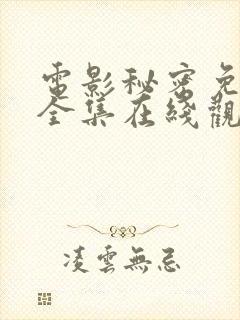 電影秘密免
全集在綫觀
凌雲無忌